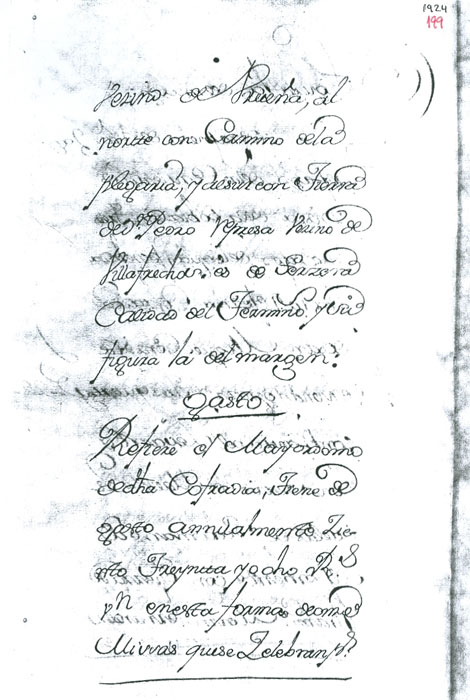 1924
199
Vezino de Urueña, al
norte con Camino dela
plegaria, y al sur con Tierra
de Dn. Pedro Represa Vezino de
Villafrechos: es de Terzera
Calidad del Termino, y su
figura la del margen.
Gasto
Refiere el Mayordomo
de dha Cofradia, Tiene de
gasto annualmente Zie-
nto Treynta y ocho Rs
vn en esta forma: de onze
Missas que se Zelebran pr.